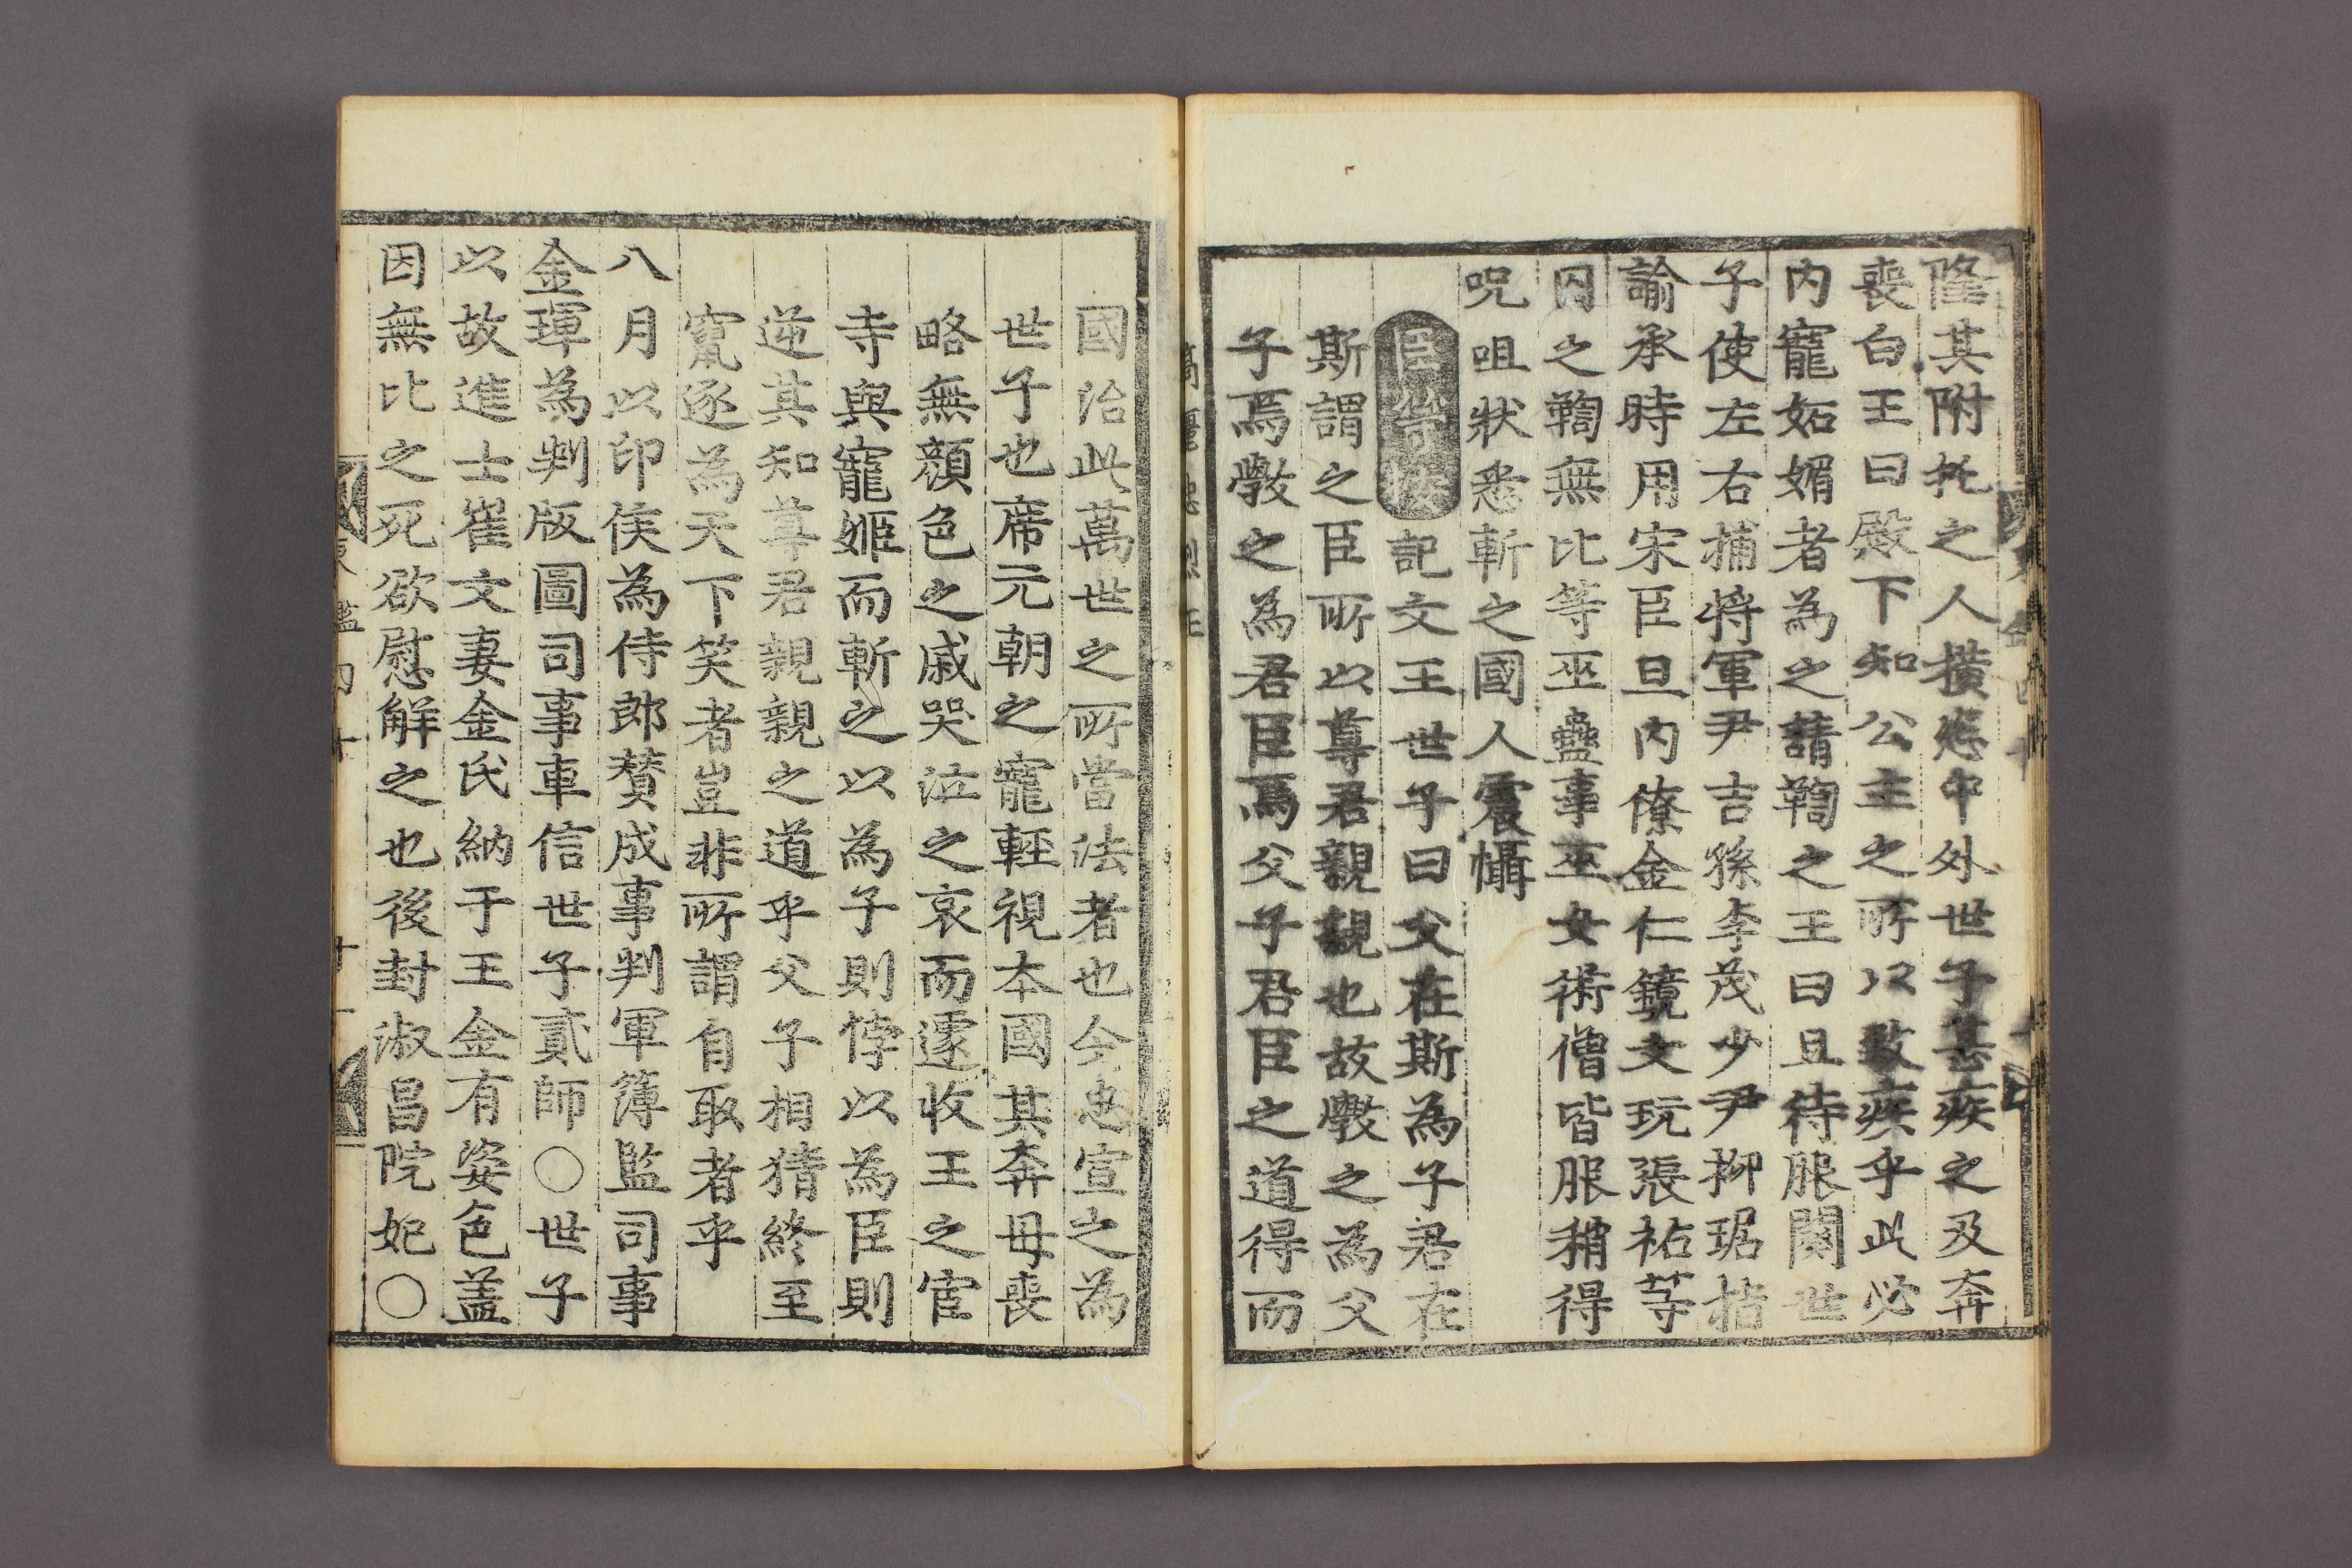 隆其附托之人橫恣中外世子甚疾之及奔
喪白王曰殿下知公主之所以致疾乎此必
內寵妬媢者為之請鞫之王曰且待服闋世
子使左右捕將軍尹吉孫李茂少尹柳琚指
諭承時用宋臣旦內僚金仁鏡文玩張祐等
囚之鞫無比等巫蠱事巫女術僧皆服稍得
呪咀狀悉斬之國人震懾
臣等按記文王世子曰父在斯為子君在
斯謂之臣所以尊君親親也故斆之為父
子焉斆之為君臣焉父子君臣之道得而
國治此萬世之所當法者也今忠宣之為
世子也席元朝之寵輕視本國其奔母喪
略無顏色之戚哭泣之哀而遽收王之宦
寺與寵姬而斬之以為子則悖以為臣則
逆其知尊君親親之道乎父子相猜終至
竄逐為天下笑者豈非所謂自取者乎
八月以印侯為侍郎贊成事判軍簿監司事
金琿為判版圖司事車信世子貳師○世子
以故進士崔文妻金氏納于王金有姿色盖
因無比之死欲慰解之也後封淑昌院妃○